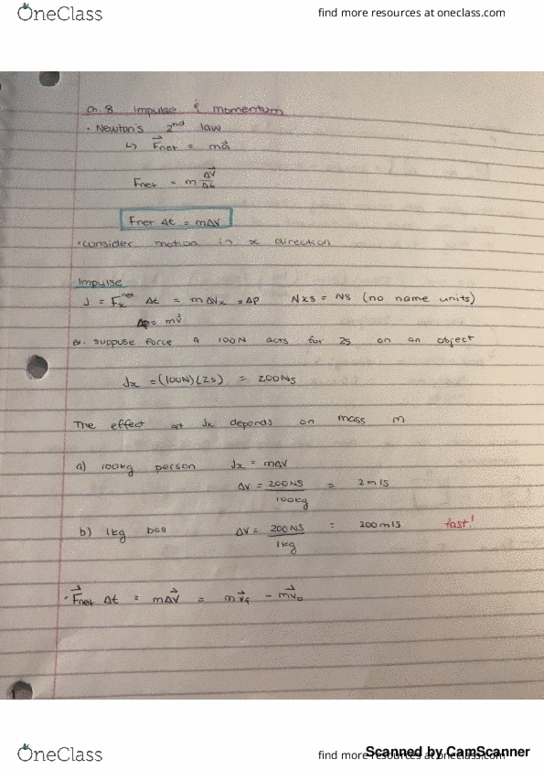 OneClass
find more resources at oneclass.com
Ch. 8 Impulse & momentum
• Newton's 2nd law
↳ F⃗net = ma⃗
Fnet = m Δv⃗/Δt
Fnet Δt = mΔV
• consider motion in x direction
Impulse
J = Fxnet Δt = mΔVx = Δp N×s = Ns (no name units)
Δp = mv⃗
ex. suppose force of 100N acts for 2s on an object
Jx = (100N)(2s) = 200Ns
The effect of Jx depends on mass m
a) 100kg person Jx = mΔV
ΔV = 200NS/100kg = 2m/s
b) 1kg ball ΔV = 200NS/1kg = 200m/s fast!
• F⃗net Δt = mΔV⃗ = mv⃗f - mv⃗o
OneClass
find more resources at oneclass.com
Scanned by CamScanner